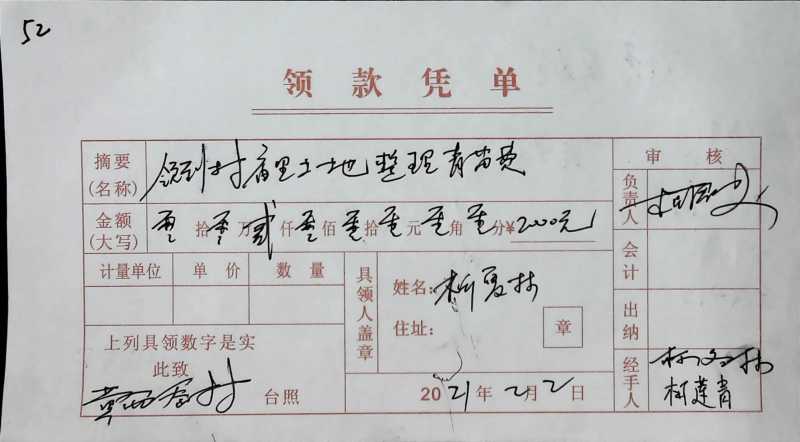 52
领款凭单
摘要(名称) 领到村 土地整理青苗费
金额(大写) 零拾零万贰仟零佰零拾零元零角零分¥2000元
审核
负责人
会计
出纳
经手人 柯 林
柯莲青
计量单位 单价 数量
上列具领数字是实
此致
村 台照
具领人盖章
姓名: 柯夏林
住址: 章
2021年2月2日